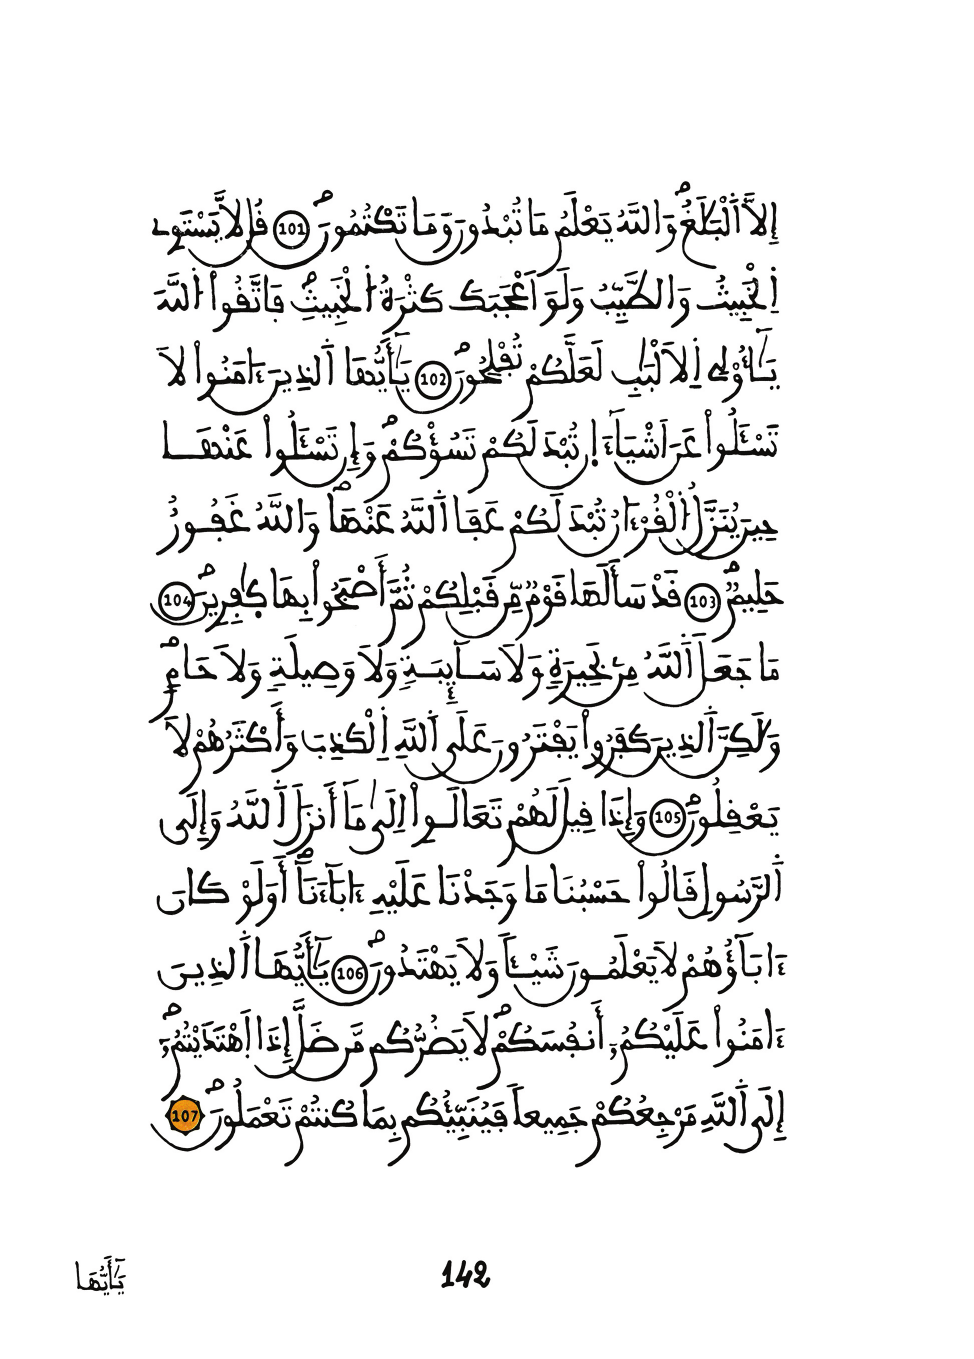 إِلَّا اَ۬لْبَلَٰغُۖ وَاللَّهُ يَعْلَمُ مَا تُبْدُونَ وَمَا تَكْتُمُونَۖ 101 قُل لَّا يَسْتَوِے
اِ۬لْخَبِيثُ وَالطَّيِّبُ وَلَوَ اَعْجَبَكَ كَثْرَةُ اُ۬لْخَبِيثِۖ فَاتَّقُواْ اُ۬للَّهَ
يَٰٓأُوْلِے اِ۬لَالْبَٰبِ لَعَلَّكُمْ تُفْلِحُونَۖ 102 يَٰٓأَيُّهَا اَ۬لذِينَ ءَامَنُواْ لَا
تَسْـَٔلُواْ عَنَ اَشْيَآءَ اِ۪ن تُبْدَ لَكُمْ تَسُؤْكُمْۖ وَإِن تَسْـَٔلُواْ عَنْهَا
حِينَ يُنَزَّلُ اُ۬لْقُرْءَانُ تُبْدَ لَكُمْ عَفَا اَ۬للَّهُ عَنْهَاۖ وَاللَّهُ غَفُورٌ
حَلِيمٞۖ 103 قَدْ سَأَلَهَا قَوْمٞ مِّن قَبْلِكُمْ ثُمَّ أَصْبَحُواْ بِهَا كَٰفِرِينَۖ 104
مَا جَعَلَ اَ۬للَّهُ مِنۢ بَحِيرَةٖ وَلَا سَآئِبَةٖ وَلَا وَصِيلَةٖ وَلَا حَامٖۖ
وَلَٰكِنَّ اَ۬لذِينَ كَفَرُواْ يَفْتَرُونَ عَلَى اَ۬للَّهِ اِ۬لْكَذِبَ وَأَكْثَرُهُمْ لَا
يَعْقِلُونَۖ 105 وَإِذَا قِيلَ لَهُمْ تَعَالَوِاْ اِلَىٰ مَآ أَنزَلَ اَ۬للَّهُ وَإِلَى
اَ۬لرَّسُولِ قَالُواْ حَسْبُنَا مَا وَجَدْنَا عَلَيْهِ ءَابَآءَنَآۖ أَوَلَوْ كَانَ
ءَابَآؤُهُمْ لَا يَعْلَمُونَ شَيْـٔاٗ وَلَا يَهْتَدُونَۖ 106 يَٰٓأَيُّهَا اَ۬لذِينَ
ءَامَنُواْ عَلَيْكُمُۥٓ أَنفُسَكُمْۖ لَا يَضُرُّكُم مَّن ضَلَّ إِذَا اَ۪هْتَدَيْتُمُۥٓۖ
إِلَى اَ۬للَّهِ مَرْجِعُكُمْ جَمِيعاٗ فَيُنَبِّئُكُم بِمَا كُنتُمْ تَعْمَلُونَۖ 107
يَٰٓأَيُّهَا
142